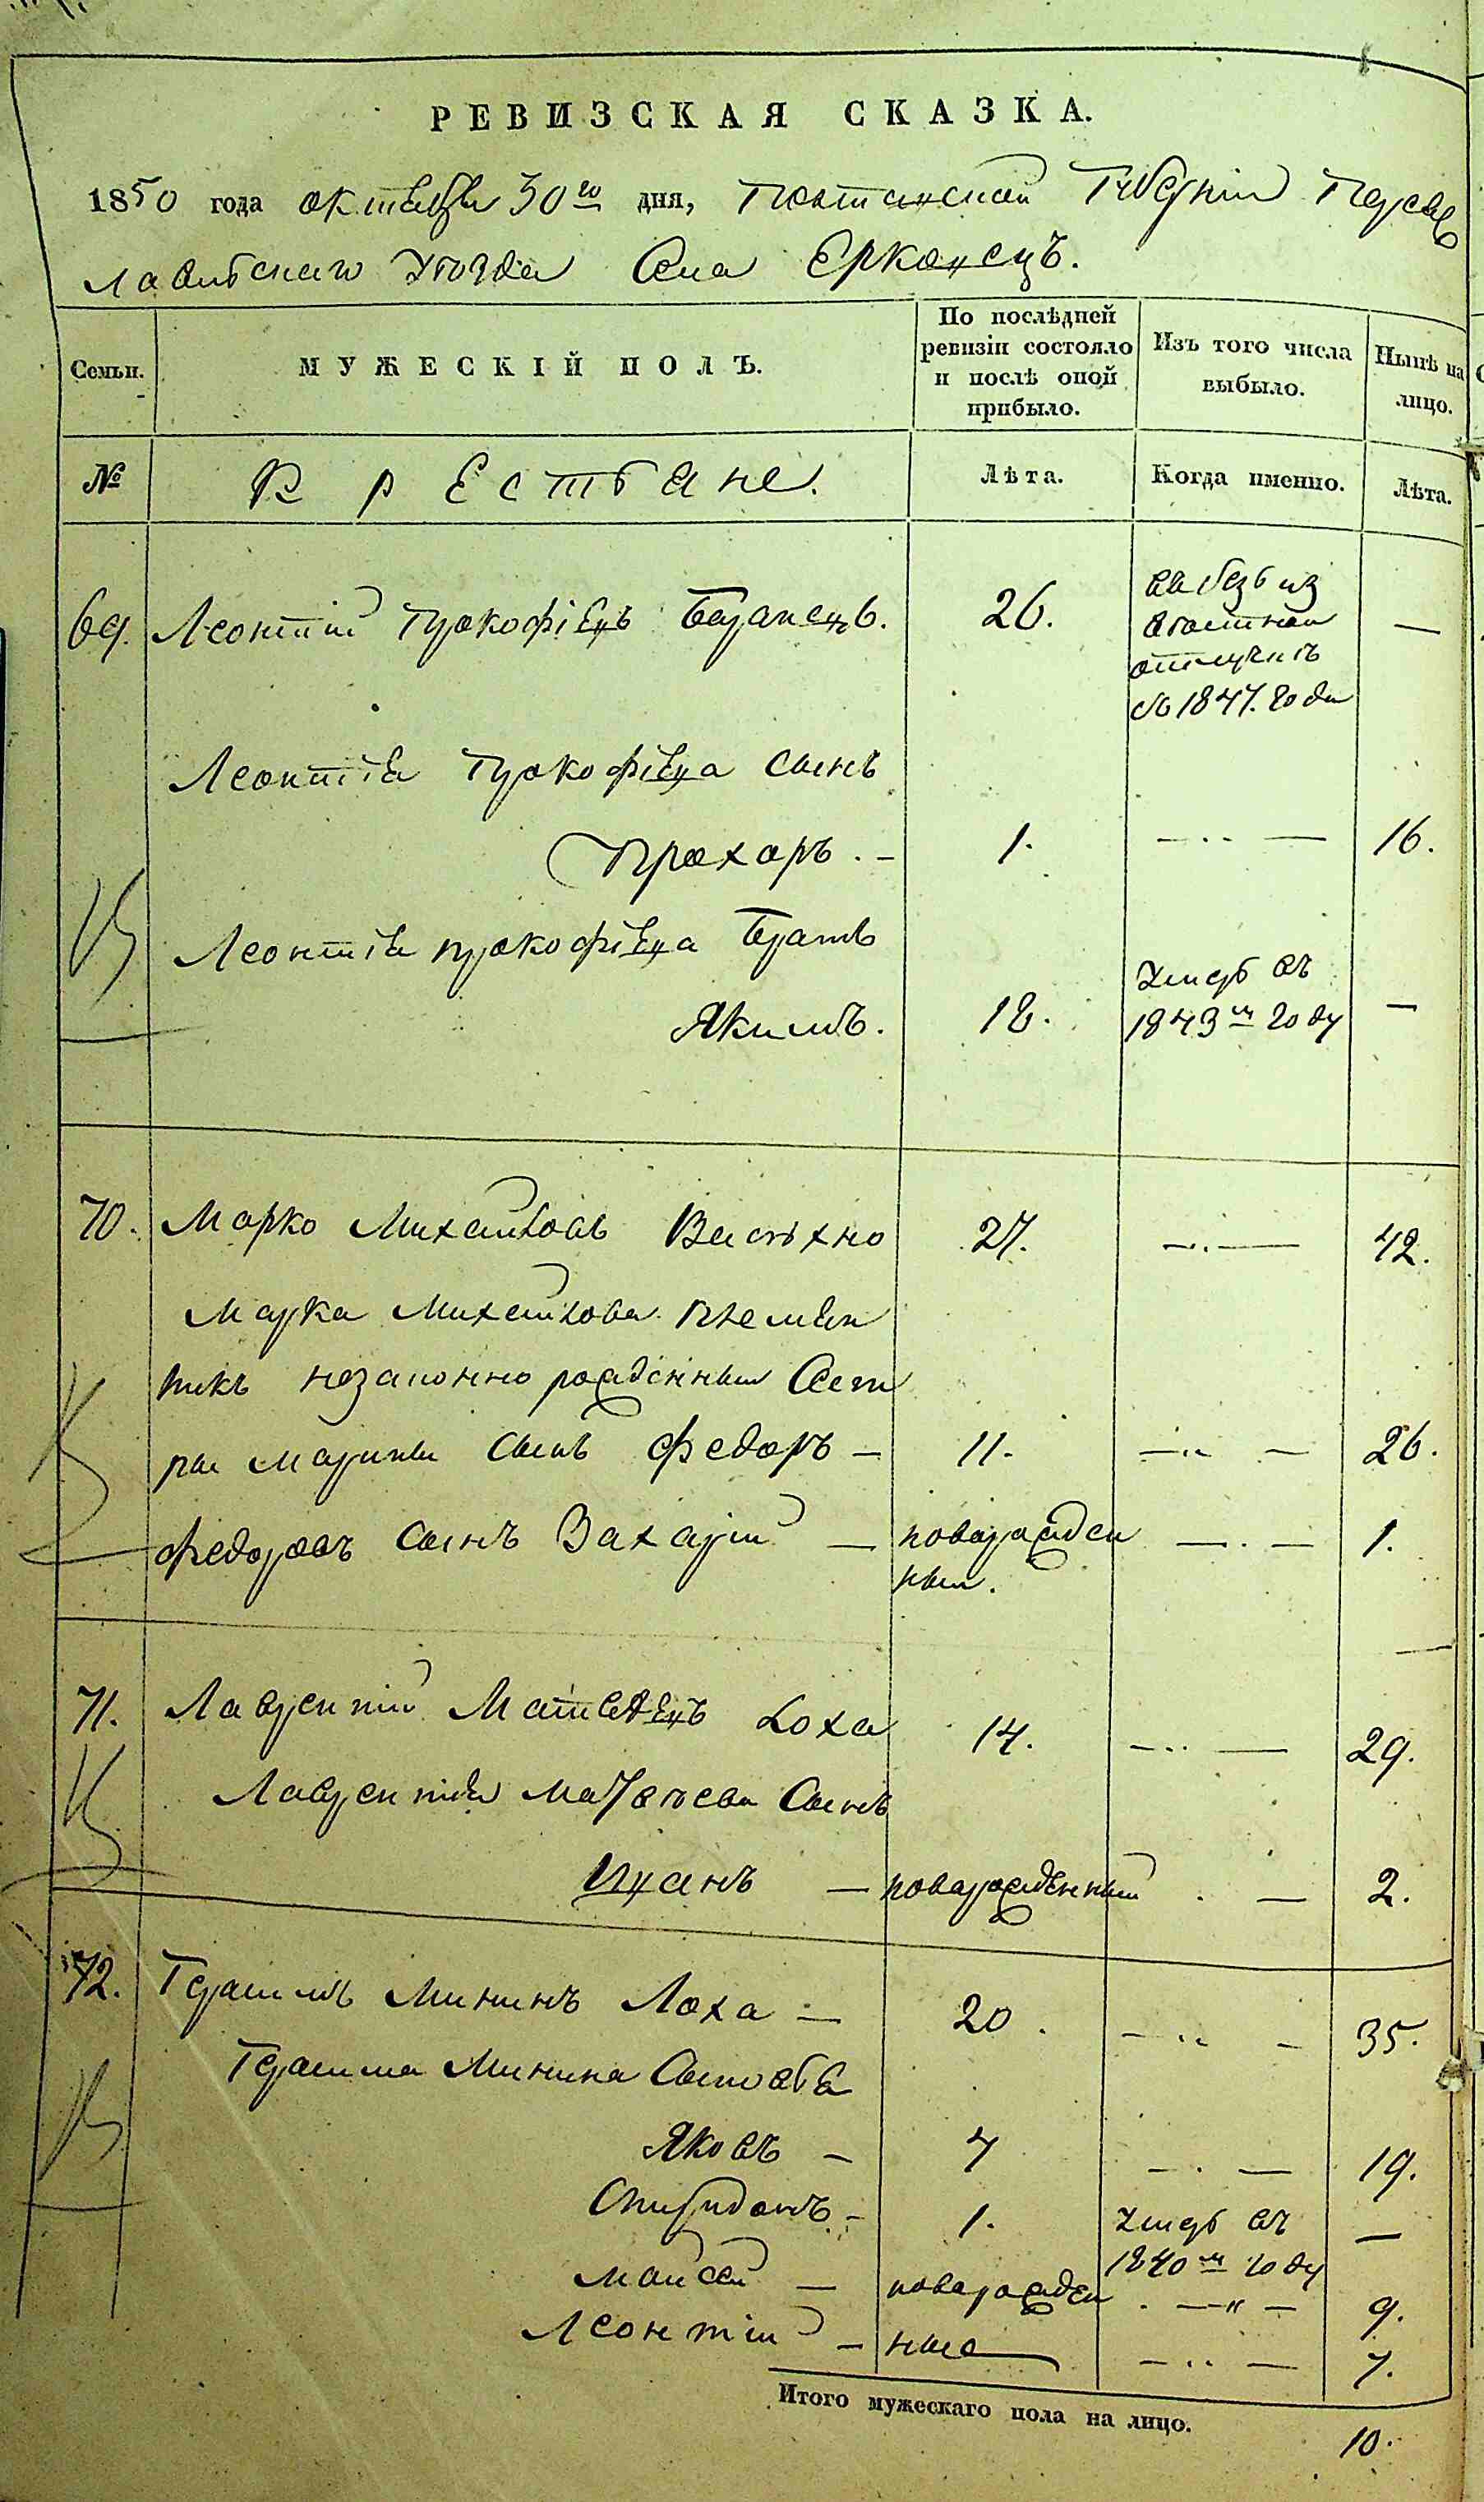 РЕВИЗСКАЯ СКАЗКА.
1850 года октября 30го дня, Полтавской Губерніи Переяс
лавскаго Уѣзда Села Ерковецъ.
Семьи.
МУЖЕСКІЙ ПОЛЪ.
По послѣдней ревизіи состояло и послѣ оной прибыло.
Изъ того числа выбыло.
Нынѣ на лицо.
№
Крестьяне.
Лѣта.
Когда именно.
Лѣта.
69. Леонтій Прокофіевъ 26. въ безъ из —
отлучкѣ
съ 1847. года
Леонтія Прокофіева сынъ
Прохоръ. — 1. — 16.
Леонтія Прокофіева братъ
Якимъ. 18. Умеръ въ 1843м году —
70. Марко Михайловъ 27. — 42.
Марка Михайлова племян
никъ незаконно рожденный Сест
ры Марины сынъ Федоръ — 11. — 26.
Федоровъ сынъ Захарій — новорожден — 1.
ный.
71. Лаврентій Матвѣевъ Лоха 14. — 29.
Лаврентія Матвѣева Сынъ
Иванъ — новорожденный — 2.
72. Герасимъ Мининъ Лоха — 20. — 35.
Герасима Минина Сыновья
Яковъ — 4 — 19.
Спиридонъ — 1. Умеръ въ —
1840м году
Моисей — новорожден — 9.
Леонтій — ные — 7.
Итого мужескаго пола на лицо.
10.